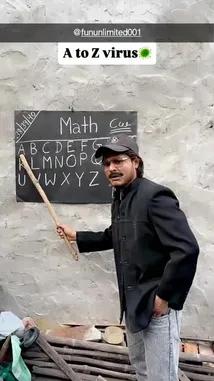 @fununlimited001
A to Z virus
Math
A B C D E F G
L M N O P
U V W X Y Z